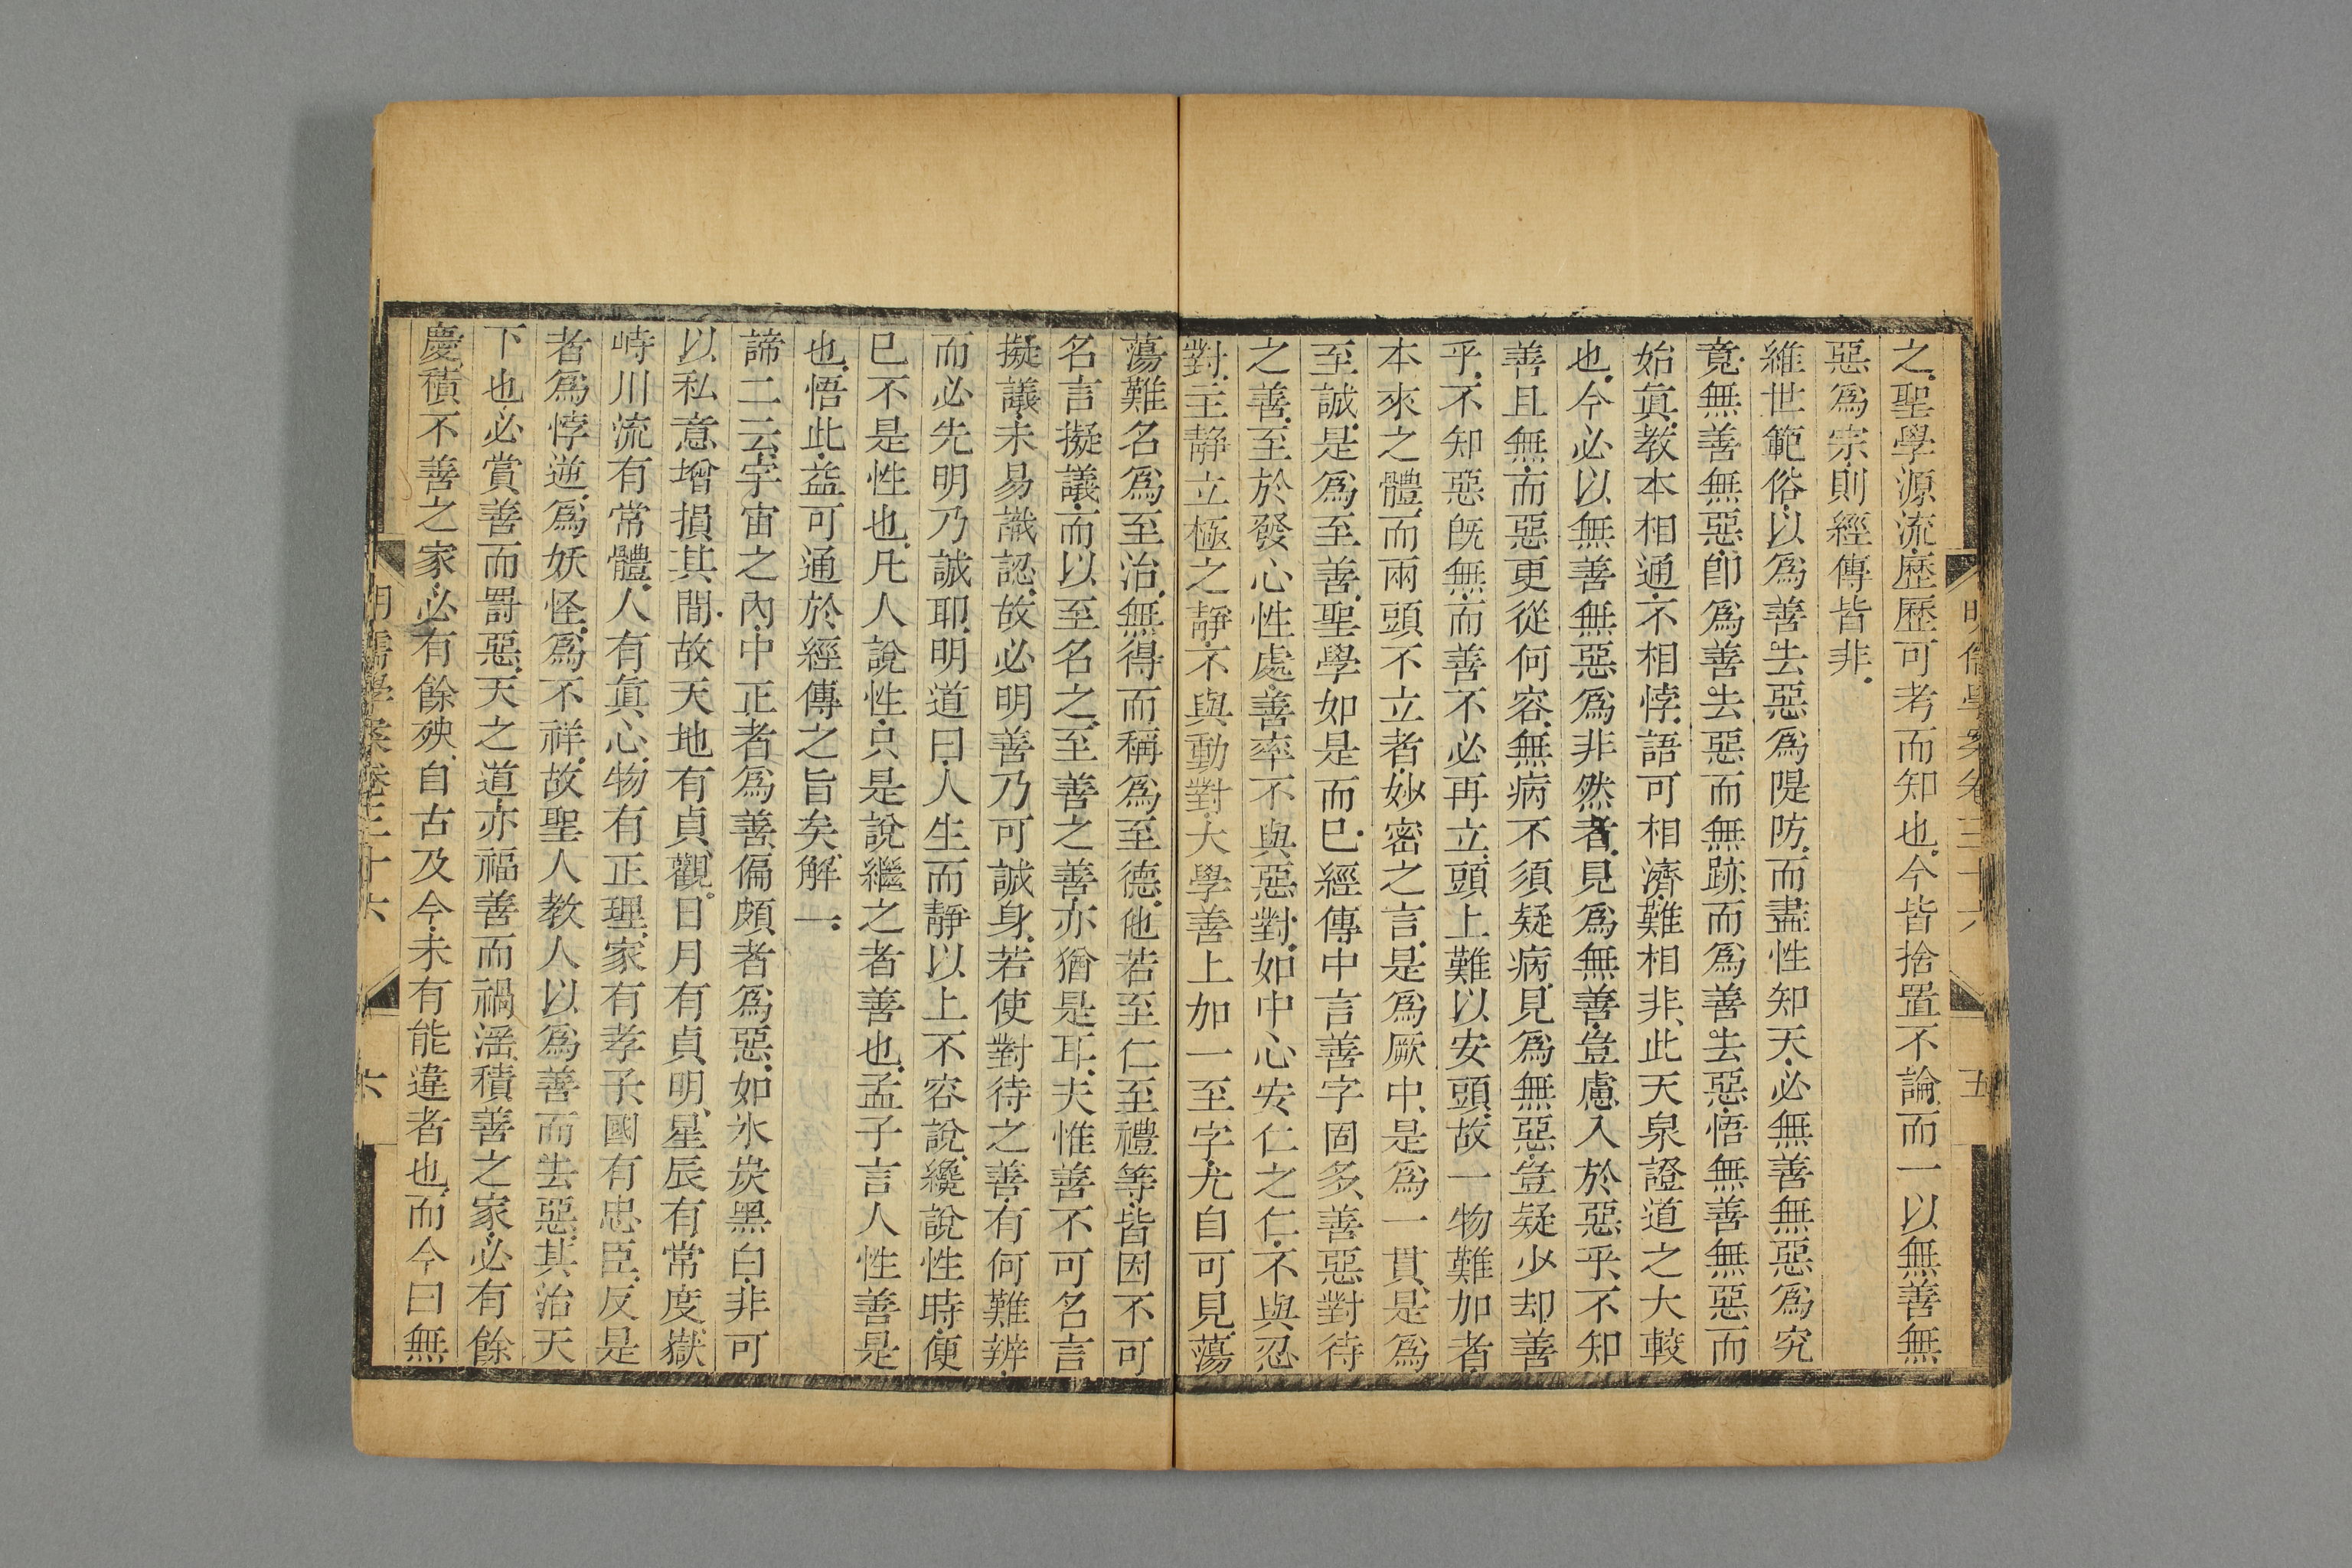 明儒學案卷三十六 五
之聖學源流歷歷可考而知也今皆捨置不論而一以無善無
惡爲宗則經傳皆非
維世範俗以爲善去惡爲隄防而盡性知天必無善無惡爲究
竟無善無惡卽爲善去惡而無跡而爲善去惡悟無善無惡而
始眞教本相通不相悖語可相濟難相非此天泉證道之大較
也今必以無善無惡爲非然者見爲無善豈慮入於惡乎不知
善且無而惡更從何容無病不須疑病見爲無惡豈疑少却善
乎不知惡旣無而善不必再立頭上難以安頭故一物難加者
本來之體而兩頭不立者妙密之言是爲厥中是爲一貫是爲
至誠是爲至善聖學如是而已經傳中言善字固多善惡對待
之善至於發心性處善率不與惡對如中心安仁之仁不與忍
對主靜立極之靜不與動對大學善上加一至字尤自可見蕩
蕩難名爲至治無得而稱爲至德他若至仁至禮等皆因不可
名言擬議而以至名之至善之善亦猶是耳夫惟善不可名言
擬議未易識認故必明善乃可誠身若使對待之善有何難辨
而必先明乃誠耶明道曰人生而靜以上不容說纔說性時便
已不是性也凡人說性只是說繼之者善也孟子言人性善是
也悟此益可通於經傳之旨矣解一
諦二云宇宙之內中正者爲善偏頗者爲惡如氷炭黑白非可
以私意增損其間故天地有貞觀日月有貞明星辰有常度嶽
峙川流有常體人有眞心物有正理家有孝子國有忠臣反是
者爲悖逆爲妖怪爲不祥故聖人教人以爲善而去惡其治天
下也必賞善而罰惡天之道亦福善而禍淫積善之家必有餘
慶積不善之家必有餘殃自古及今未有能違者也而今曰無
明儒學案卷三十六 六